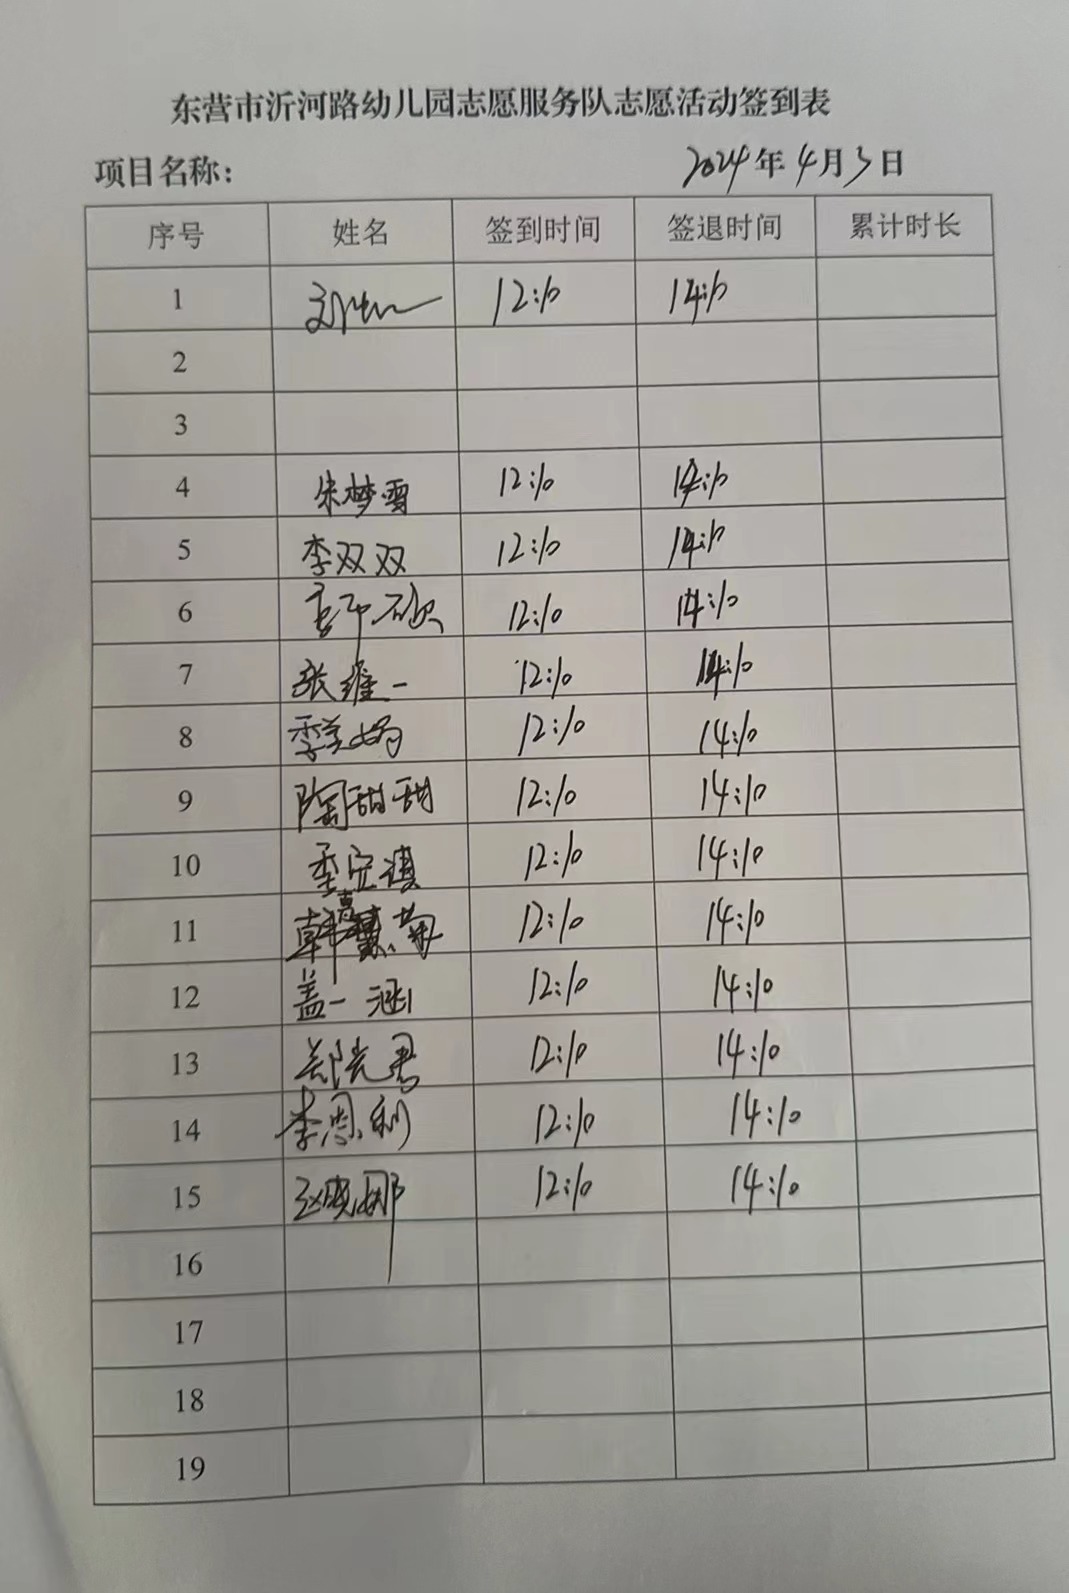 东营市沂河路幼儿园志愿服务队志愿活动签到表
项目名称： 2024年4月3日
序号 姓名 签到时间 签退时间 累计时长
1 12:10 14:10
2
3
4 朱梦雪 12:10 14:10
5 李双双 12:10 14:10
6 12:10 14:10
7 张维一 12:10 14:10
8 李美娟 12:10 14:10
9 陶甜甜 12:10 14:10
10 季安琪 12:10 14:10
11 韩惠菊 12:10 14:10
12 盖一涵 12:10 14:10
13 郑晓君 12:10 14:10
14 李恩利 12:10 14:10
15 赵晓娜 12:10 14:10
16
17
18
19